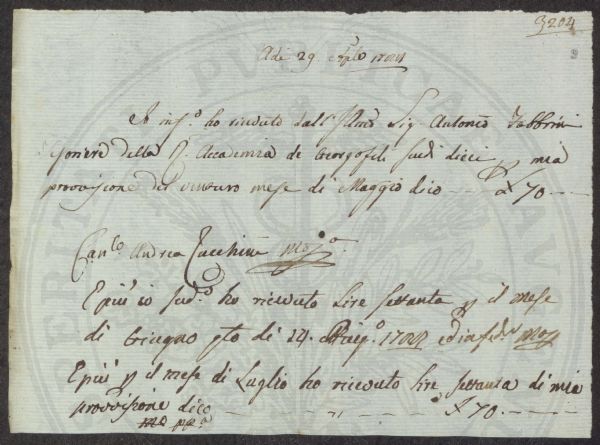 3204
Adi 29
Io inf.o ho riceuto dall' Illmo Sig. Antonio Fabbrini
della R. Accademia de Georgofili scudi dieci p mia
provisione del venturo mese di Maggio dico £ 70
Can.co Andrea Zucchini mo pa
E più io sud.o ho riceuto lire settanta p il mese
di Giugno q.to di 24
E più p il mese di Luglio ho riceuto lire settanta di mia
provvisione dico £ 70